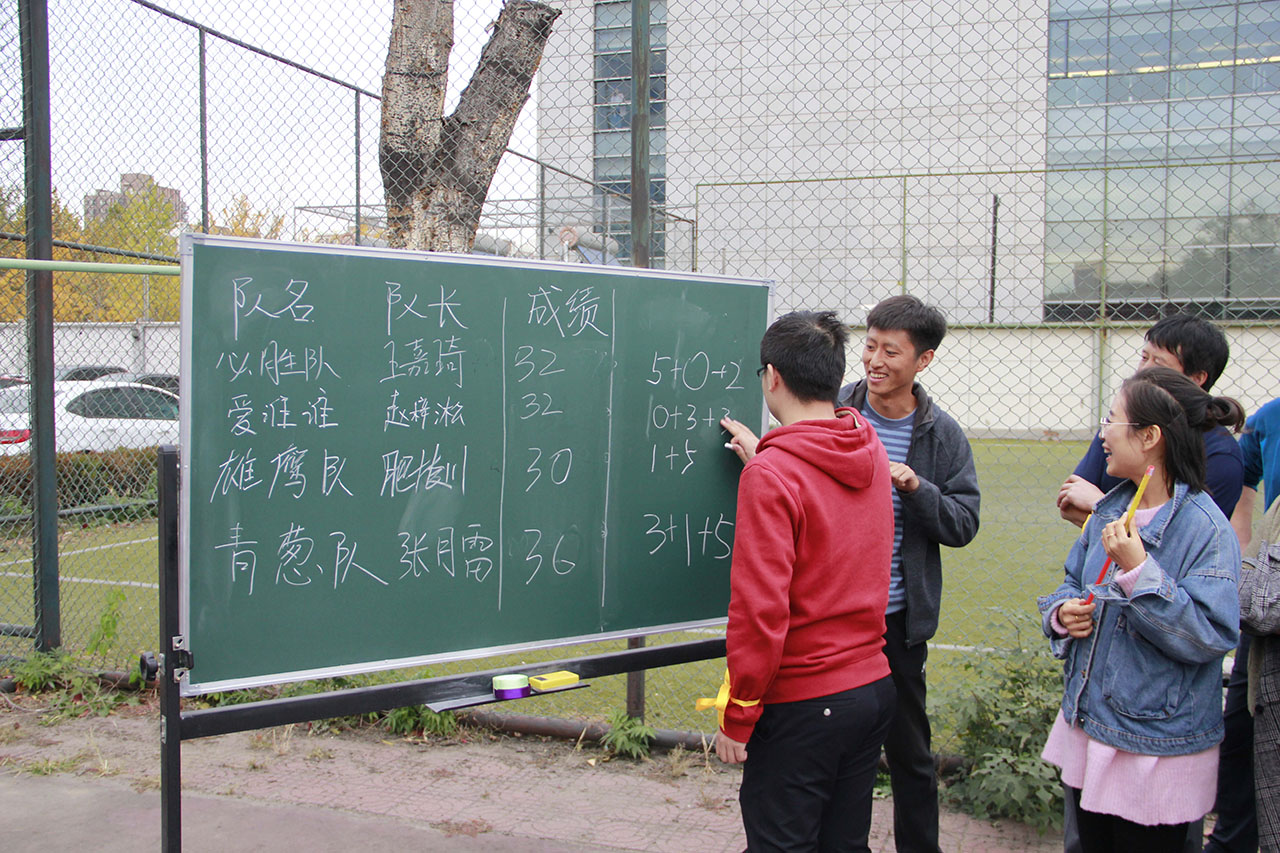 队名 队长 成绩
必胜队 王嘉琦 32 5+0+2
爱谁谁 赵梓淞 32 0+3+3
雄鹰队 30 1+5
青葱队 张月雷 36 3+1+5